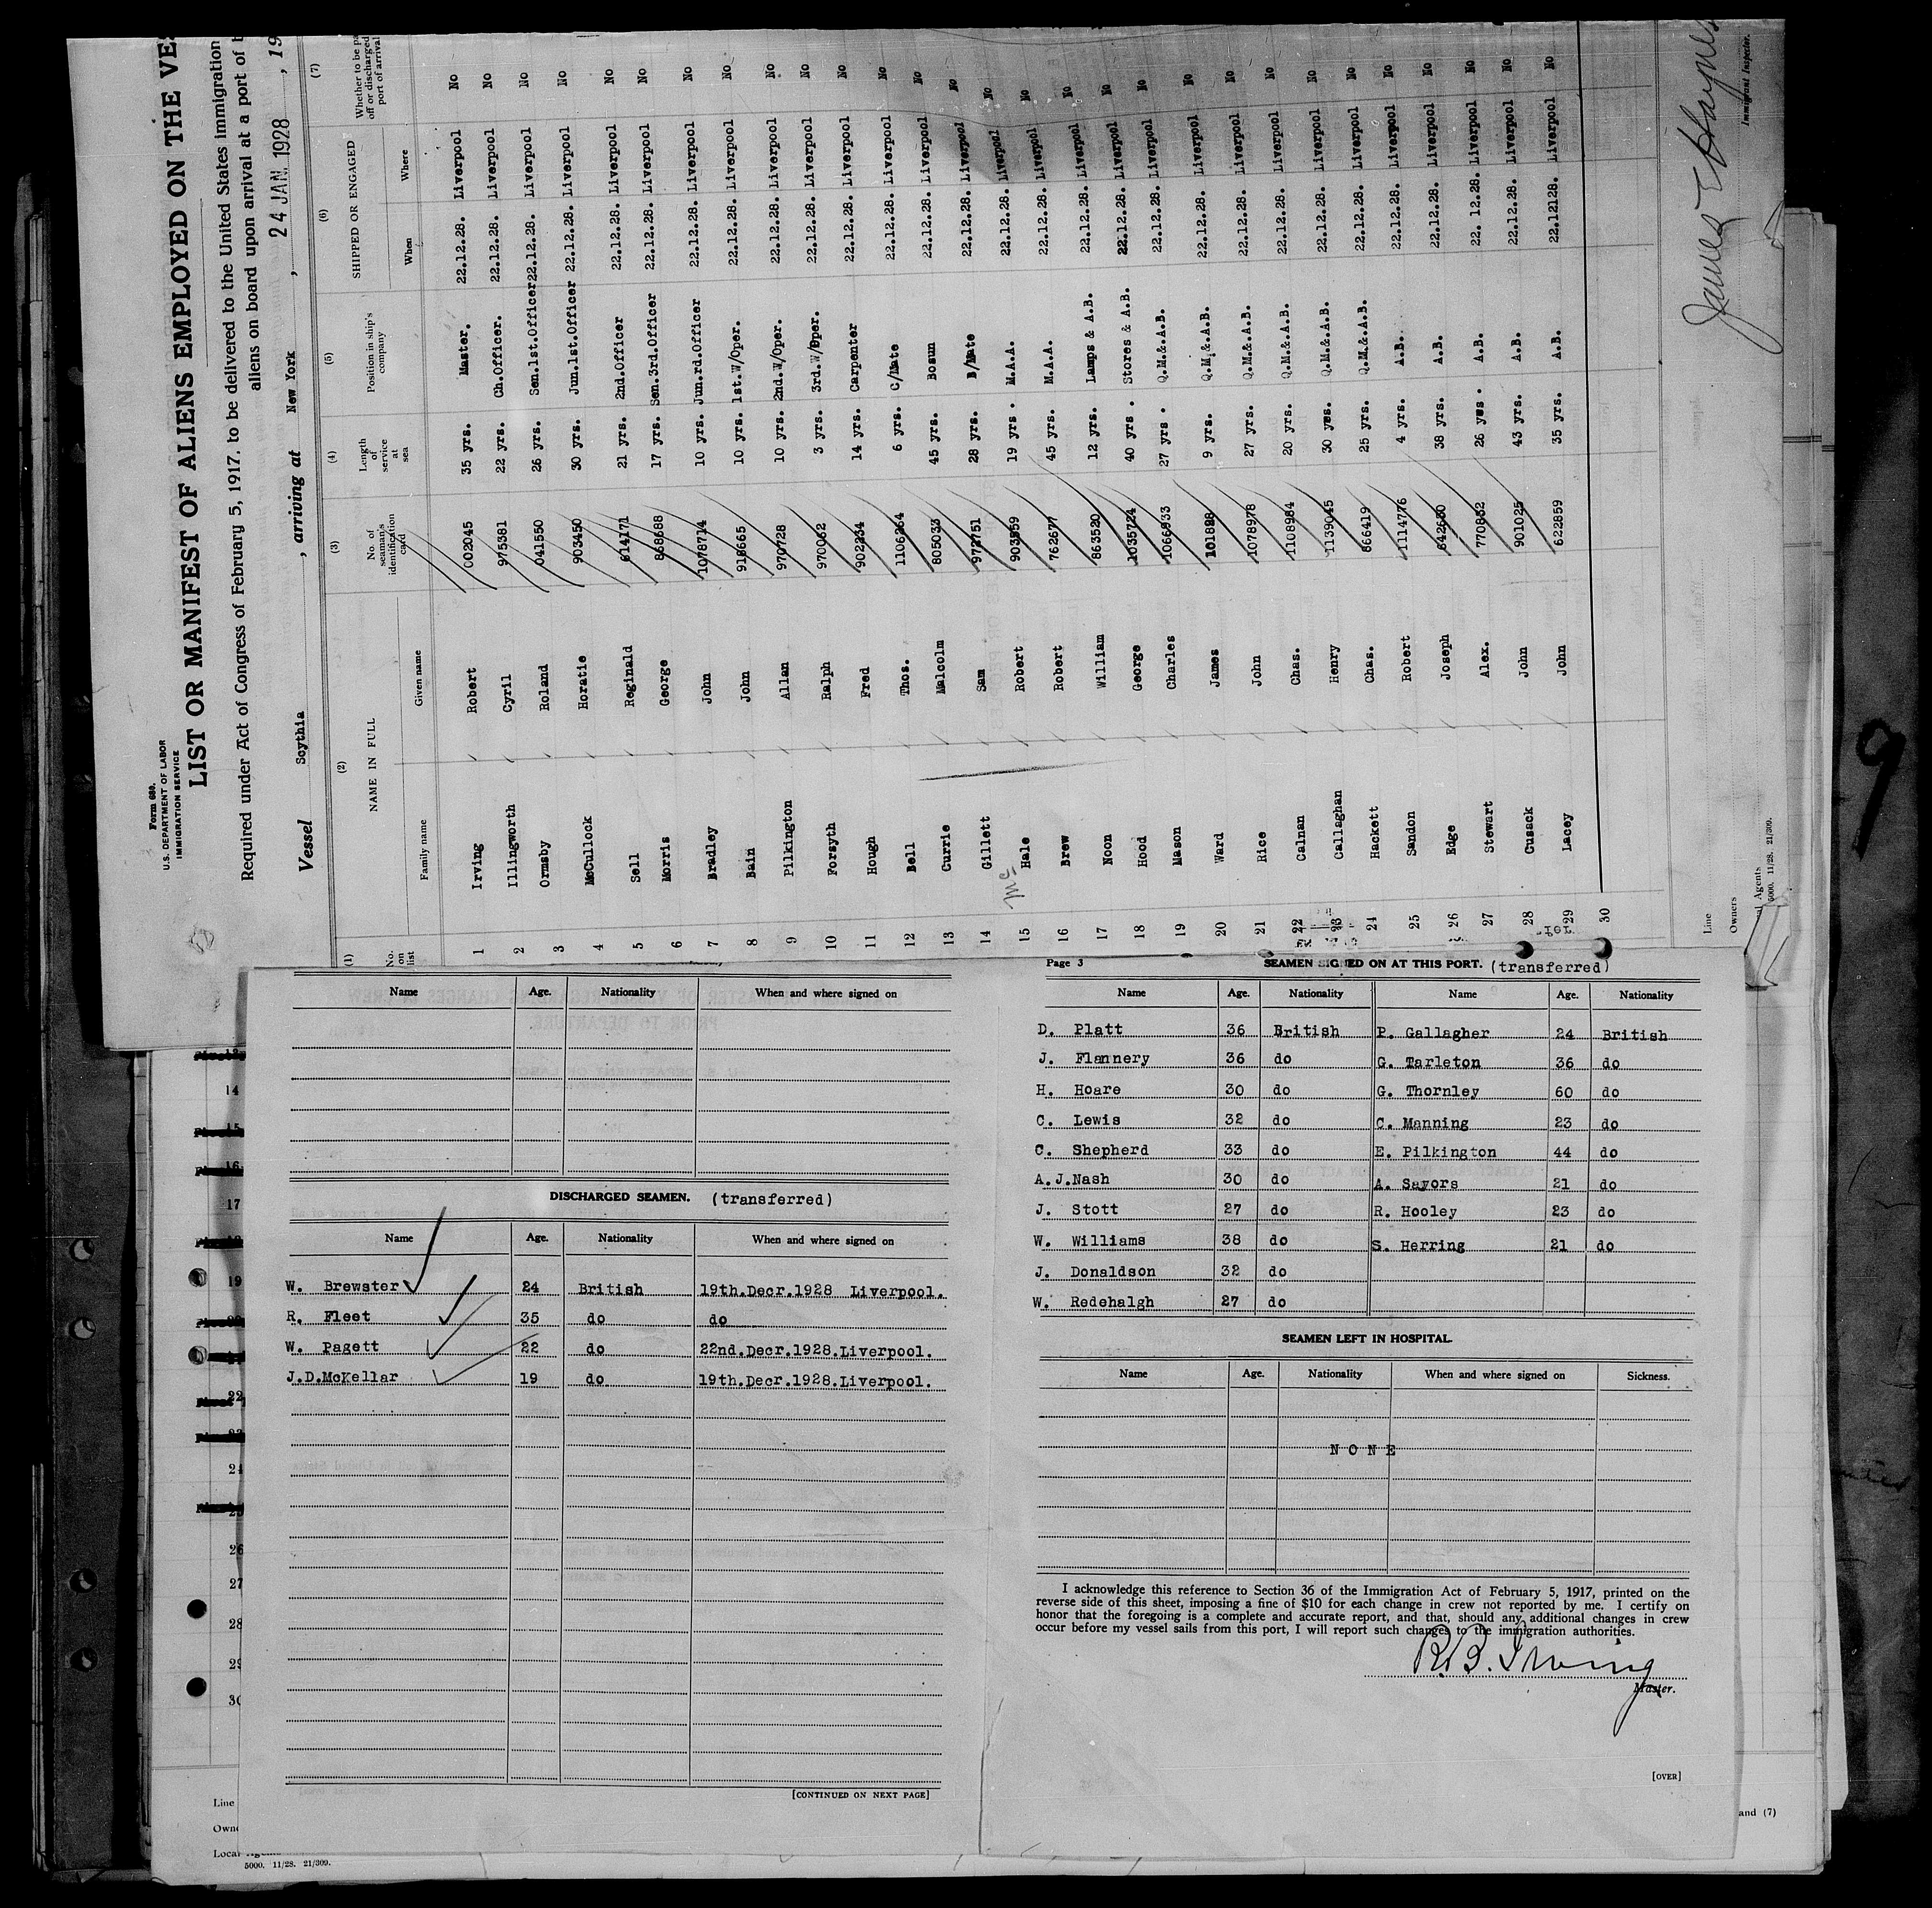 Form 689.
U.S. DEPARTMENT OF LABOR
IMMIGRATION SERVICE
LIST OR MANIFEST OF ALIENS EMPLOYED ON THE
Required under Act of Congress of February 5, 1917. to be delivered to the United States Immigration
aliens on board upon arrival at a port of
Vessel Scythia , arriving at New York , 24 JAN. 1928 , 19
(1) (2) (3) (4) (5) (6) (7)
No. on list NAME IN FULL No. of seaman's identification card Length of service at sea Position in ship's company SHIPPED OR ENGAGED Whether to be
off or discharged
port of arrival
Family name Given name When Where
1 Irving Robert 002045 35 yrs. Master. 22.12.28. Liverpool No
2 Illingworth Cyril 975381 22 yrs. Ch.Officer. 22.12.28. Liverpool No
3 Ormsby Roland 041550 26 yrs. Sen.1st.Officer 22.12.28. Liverpool No
4 McCullock Horatie 903450 30 yrs. Jun.1st.Officer 22.12.28. Liverpool No
5 Sell Reginald 614171 21 yrs. 2nd.Officer 22.12.28. Liverpool No
6 Morris George 868688 17 yrs. Sen.3rd.Officer 22.12.28. Liverpool No
7 Bradley John 1078714 10 yrs. Jun.rd.Officer 22.12.28. Liverpool No
8 Bain John 918665 10 yrs. 1st.W/Oper. 22.12.28. Liverpool No
9 Pilkington Allan 970728 10 yrs. 2nd.W/Oper. 22.12.28. Liverpool No
10 Forsyth Ralph 970062 3 yrs. 3rd.W/Oper. 22.12.28. Liverpool No
11 Hough Fred 902234 14 yrs. Carpenter 22.12.28. Liverpool No
12 Bell Thos. 1106264 6 yrs. C/Mate 22.12.28. Liverpool No
13 Currie Malcolm 805033 45 yrs. Bosun 22.12.28. Liverpool No
14 Gillett Sam 972751 28 yrs. B/Mate 22.12.28. Liverpool No
15 Mc Hale Robert 903559 19 yrs. M.A.A. 22.12.28. Liverpool No
16 Brew Robert 762677 45 yrs. M.A.A. 22.12.28. Liverpool No
17 Noon William 863520 12 yrs. Lamps & A.B. 22.12.28. Liverpool No
18 Hood George 1035724 40 yrs. Stores & A.B. 22.12.28. Liverpool No
19 Mason Charles 1066933 27 yrs. Q.M.&.A.B. 22.12.28. Liverpool No
20 Ward James 101828 9 yrs. Q.M.&.A.B. 22.12.28. Liverpool No
21 Rice John 1078978 27 yrs. Q.M.&.A.B. 22.12.28. Liverpool No
22 Calnan Chas. 1108984 20 yrs. Q.M.&.A.B. 22.12.28. Liverpool No
23 Callaghan Henry 1139045 30 yrs. Q.M.&.A.B. 22.12.28. Liverpool No
24 Hackett Chas. 866419 25 yrs. Q.M.&.A.B. 22.12.28. Liverpool No
25 Sandon Robert 1114776 4 yrs. A.B. 22.12.28. Liverpool No
26 Edge Joseph 642680 38 yrs. A.B. 22.12.28. Liverpool No
27 Stewart Alex. 770852 26 yrs. A.B. 22. 12.28. Liverpool No
28 Cusack John 901025 43 yrs. A.B. 22.12.28. Liverpool No
29 Lacey John 622859 35 yrs. A.B. 22.12128. Liverpool No
30
Line
Owners
Agents
5000. 11/28. 21/309.
James E Haynes
Immigrant Inspector.
9
Name Age. Nationality When and where signed on
DISCHARGED SEAMEN. (transferred)
Name Age. Nationality When and where signed on
W. Brewster 24 British 19th.Decr.1928 Liverpool.
R. Fleet 35 do do
W. Pagett 22 do 22nd.Decr.1928.Liverpool.
J.D.McKellar 19 do 19th.Decr.1928.Liverpool.
[CONTINUED ON NEXT PAGE]
Page 3 SEAMEN SIGNED ON AT THIS PORT. (transferred)
Name Age. Nationality Name Age. Nationality
D. Platt 36 British P. Gallagher 24 British
J. Flannery 36 do G. Tarleton 36 do
H. Hoare 30 do G. Thornley 60 do
C. Lewis 32 do C. Manning 23 do
C. Shepherd 33 do E. Pilkington 44 do
A.J.Nash 30 do A. Sayors 21 do
J. Stott 27 do R. Hooley 23 do
W. Williams 38 do S. Herring 21 do
J. Donaldson 32 do
W. Redehalgh 27 do
SEAMEN LEFT IN HOSPITAL.
Name Age. Nationality When and where signed on Sickness.
NONE
I acknowledge this reference to Section 36 of the Immigration Act of February 5, 1917, printed on the
reverse side of this sheet, imposing a fine of $10 for each change in crew not reported by me. I certify on
honor that the foregoing is a complete and accurate report, and that, should any additional changes in crew
occur before my vessel sails from this port, I will report such changes to the immigration authorities.
R.B. Irving
Master.
[OVER]
14
15
16
17
19
22
24
26
27
28
29
30
Line
Local
5000. 11/28. 21/309.
and (7)